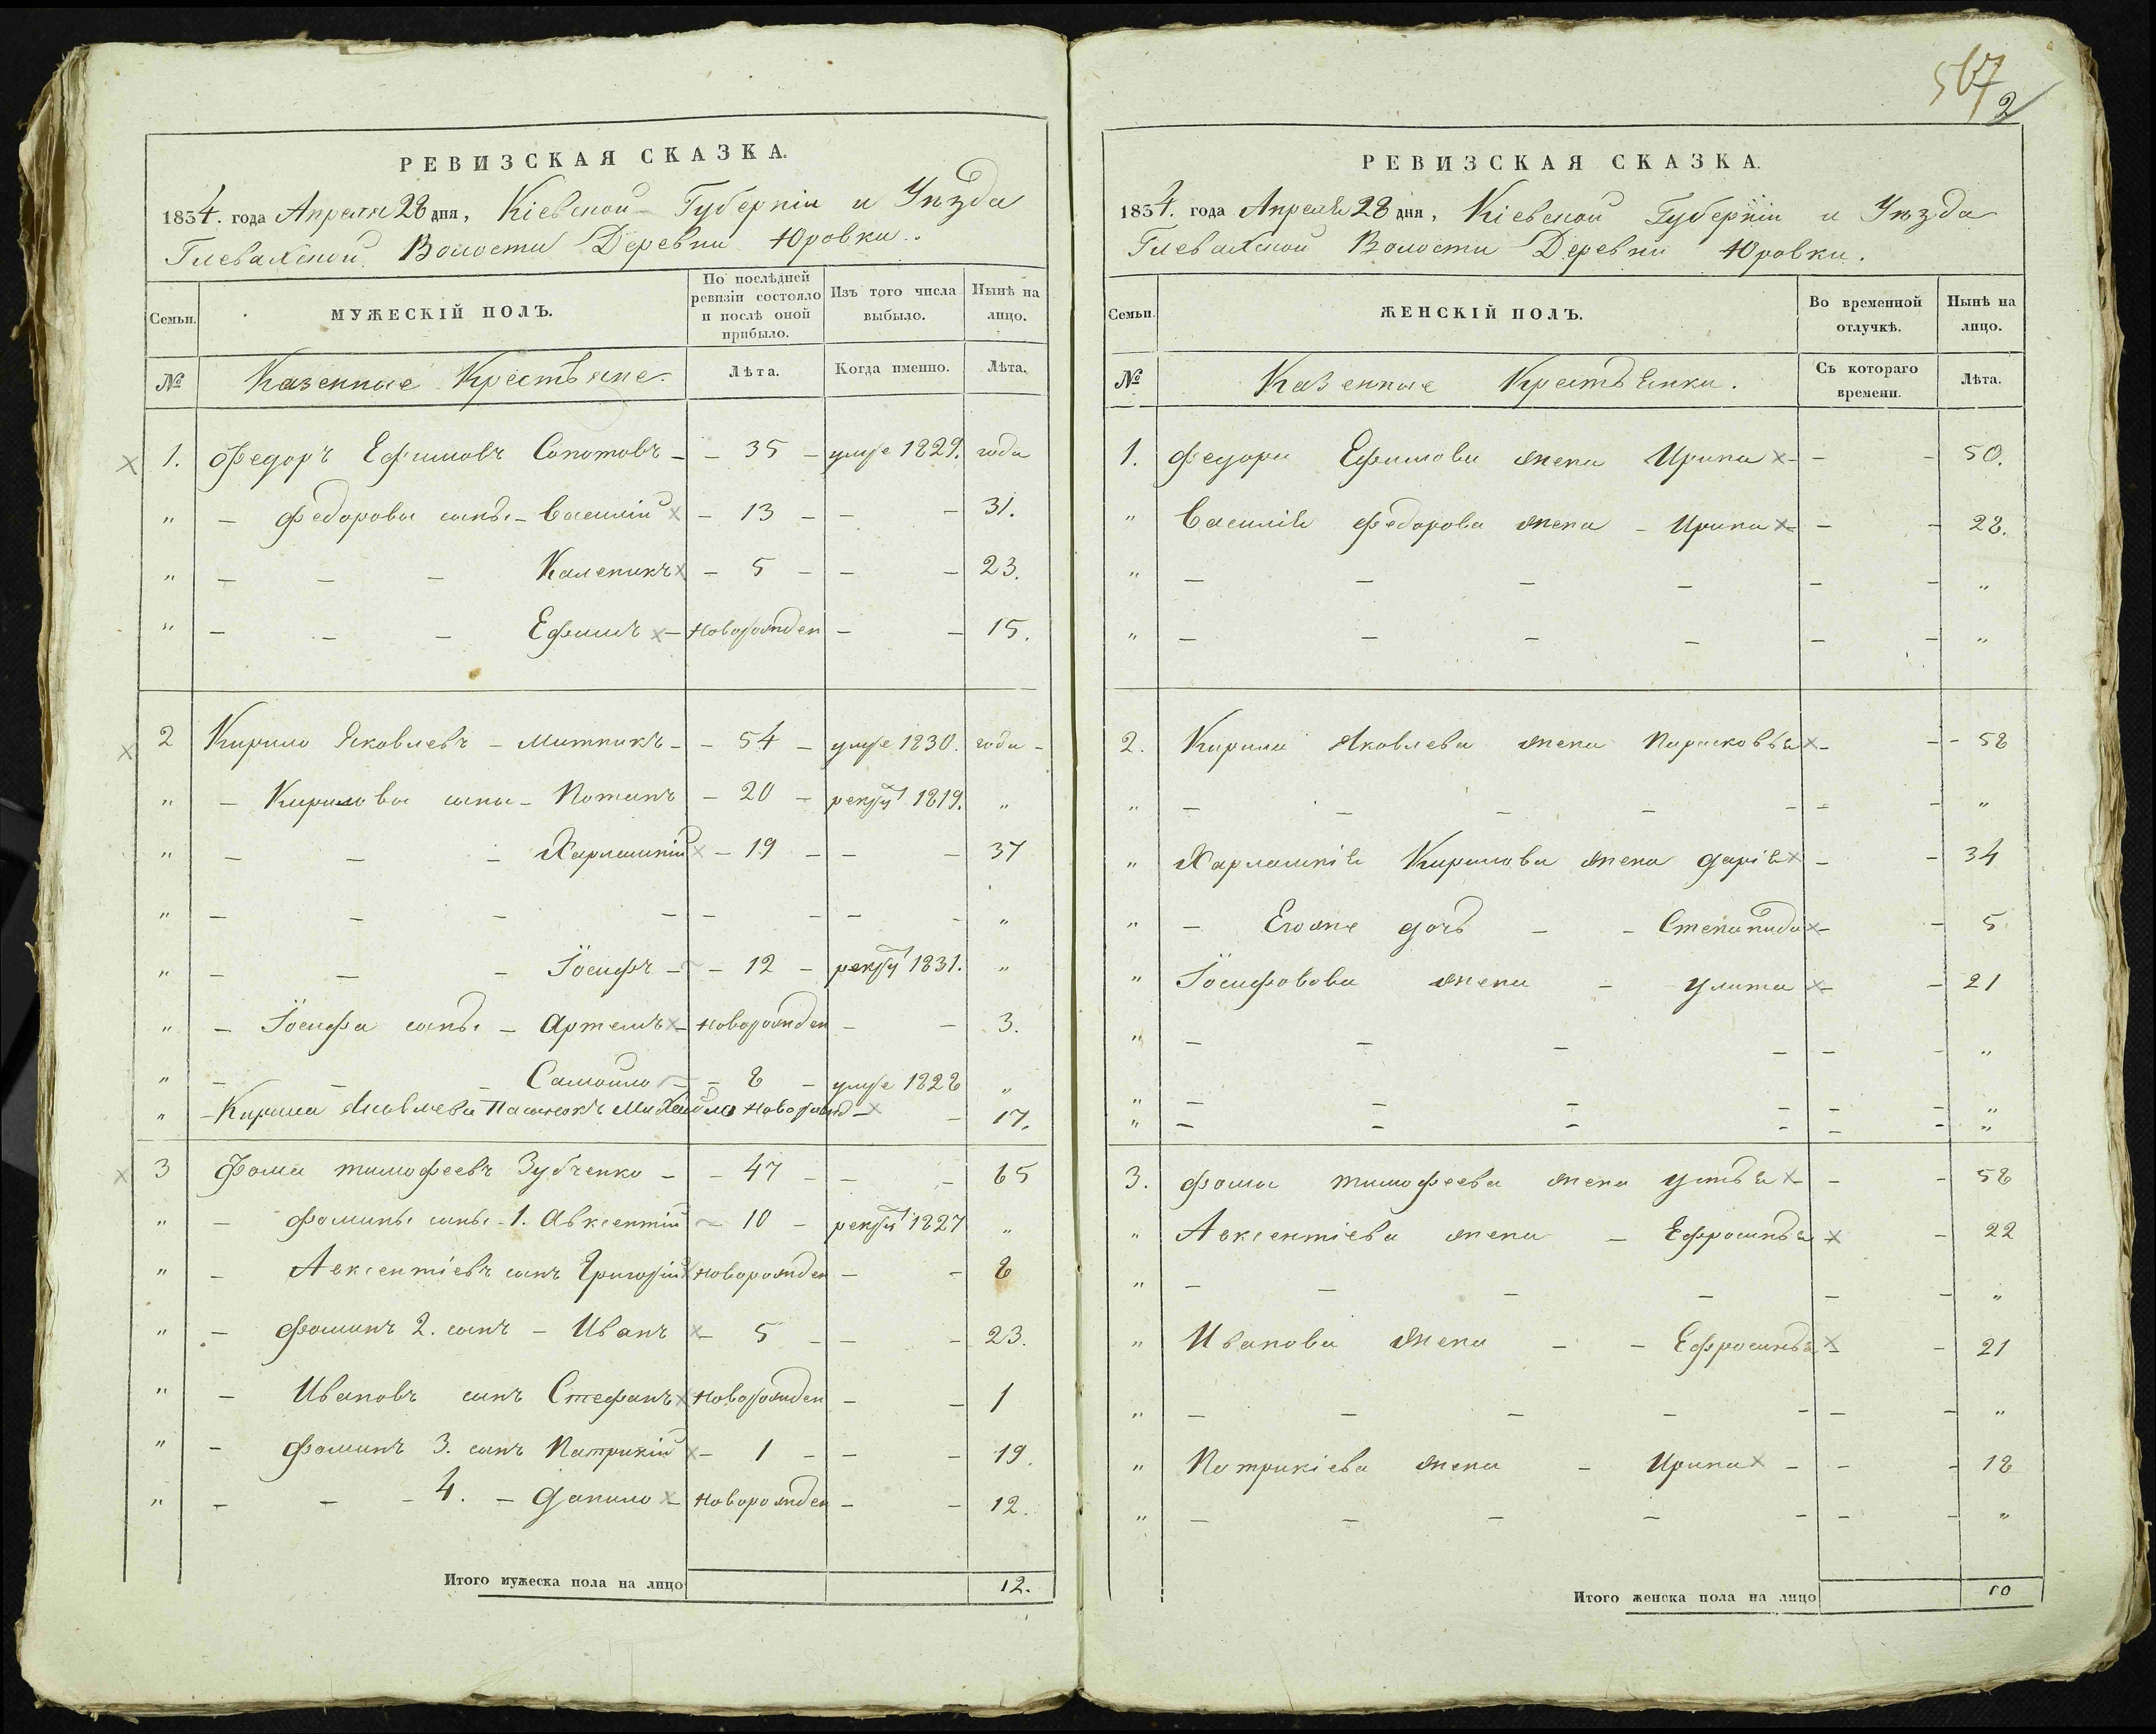 РЕВИЗСКАЯ СКАЗКА.
1834. года Апреля 28 дня, Кіевской Губерніи и Уѣзда
Глевахской Волости Деревни Юровки.
Семьи. МУЖЕСКІЙ ПОЛЪ. По послѣдней ревизіи состояло и послѣ оной прибыло. Изъ того числа выбыло. Нынѣ на лицо.
№ Казенные Крестьяне. Лѣта. Когда именно. Лѣта.
1. Федоръ Ефимовъ - - 35 - умре 1829. года
" - Федоровы сыны - Василій - 13 - - - 31.
" - - - Каленикъ - 5 - - - 23.
" - - - Ефимъ - Новорожден - - 15.
2 Кирило Яковлевъ - Митникъ - - 54 - умре 1830. года -
" - Кириловы сыны - Потапъ - 20 - рекру 1819. "
" - - - Харлампій - 19 - - - 37
" - - - - - - - - "
" - - - Іосифъ - - 12 - рекру 1831. "
" - Іосифа сынъ - Артемъ - Новорожден - - 3.
" - - - Самойло - - 8 - умре 1828 "
" - Кирила Яковлева Михайло Новорожд - - 17.
3 Фома тимофеевъ Зубченко - - 47 - - - 65
" - Фомины сыны - 1. Авксентій - 10 - рекру 1827 "
" - Авксентіевъ сынъ Григорій Новорожден - - 8
" - Фоминъ 2. сынъ - Иванъ - 5 - - - 23.
" - Ивановъ сынъ Стефанъ Новорожден - - 1
" - Фоминъ 3. сынъ Патрикій - 1 - - - 19.
" - - - 4. - Данило - Новорожден - - 12.
Итого мужеска пола на лицо 12.
567
2
РЕВИЗСКАЯ СКАЗКА.
1834. года Апреля 28 дня, Кіевской Губерніи и Уѣзда
Глевахской Волости Деревни Юровки.
Семьи. ЖЕНСКІЙ ПОЛЪ. Во временной отлучкѣ. Нынѣ на лицо.
№ Казенные Крестьянки. Съ котораго времени. Лѣта.
1. Федора Ефимова жена Ирина - - - 50.
" Василія Федорова жена - Ирина - - - 28.
" - - - - - - "
" - - - - - - "
2. Кирила Яковлева жена Парасковья - - - 58
" - - - - - - "
" Харлампія Кирилова жена Дарія - - 34
" - Егоже дочь - - Степанида - - 5.
" Іосифовова жена - Улита - - 21
" - - - - - - "
" - - - - - - "
" - - - - - - "
3. Фомы тимофеева жена Устья - - - 58
" Авксентіева жена - Ефросинья - 22
" - - - - - - "
" Иванова жена - - Ефросинья - - 21
" - - - - - - - "
" Патрикіева жена - Ирина - - - 18
" - - - - - - - "
Итого женска пола на лицо 10